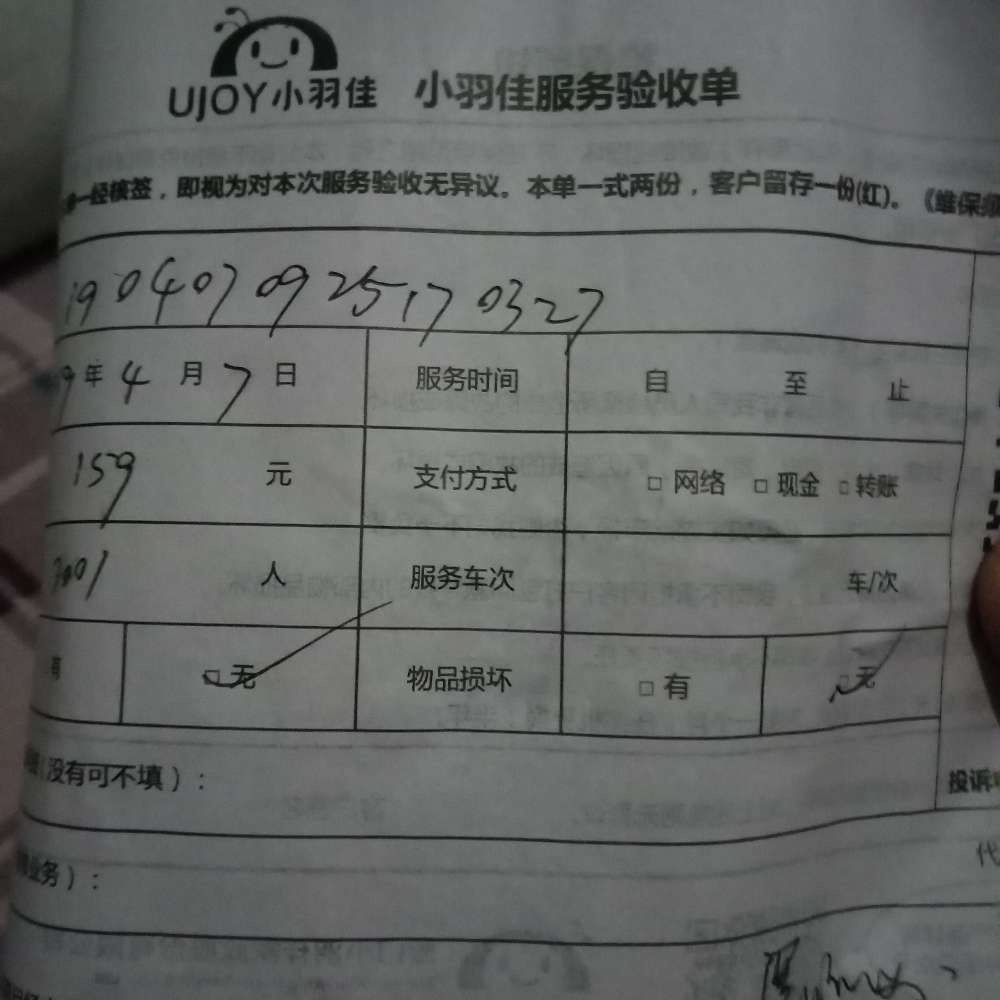 UJOY小羽佳 小羽佳服务验收单
一经核签，即视为对本次服务验收无异议。本单一式两份，客户留存一份(红)。《维保须
1904070925170327
9年4月7日 服务时间 自 至 止
159 元 支付方式 □ 网络 □ 现金 □ 转账
人 服务车次 车/次
有 □ 无 物品损坏 □ 有 □ 无
(没有可不填)：
投诉
代
业务)：